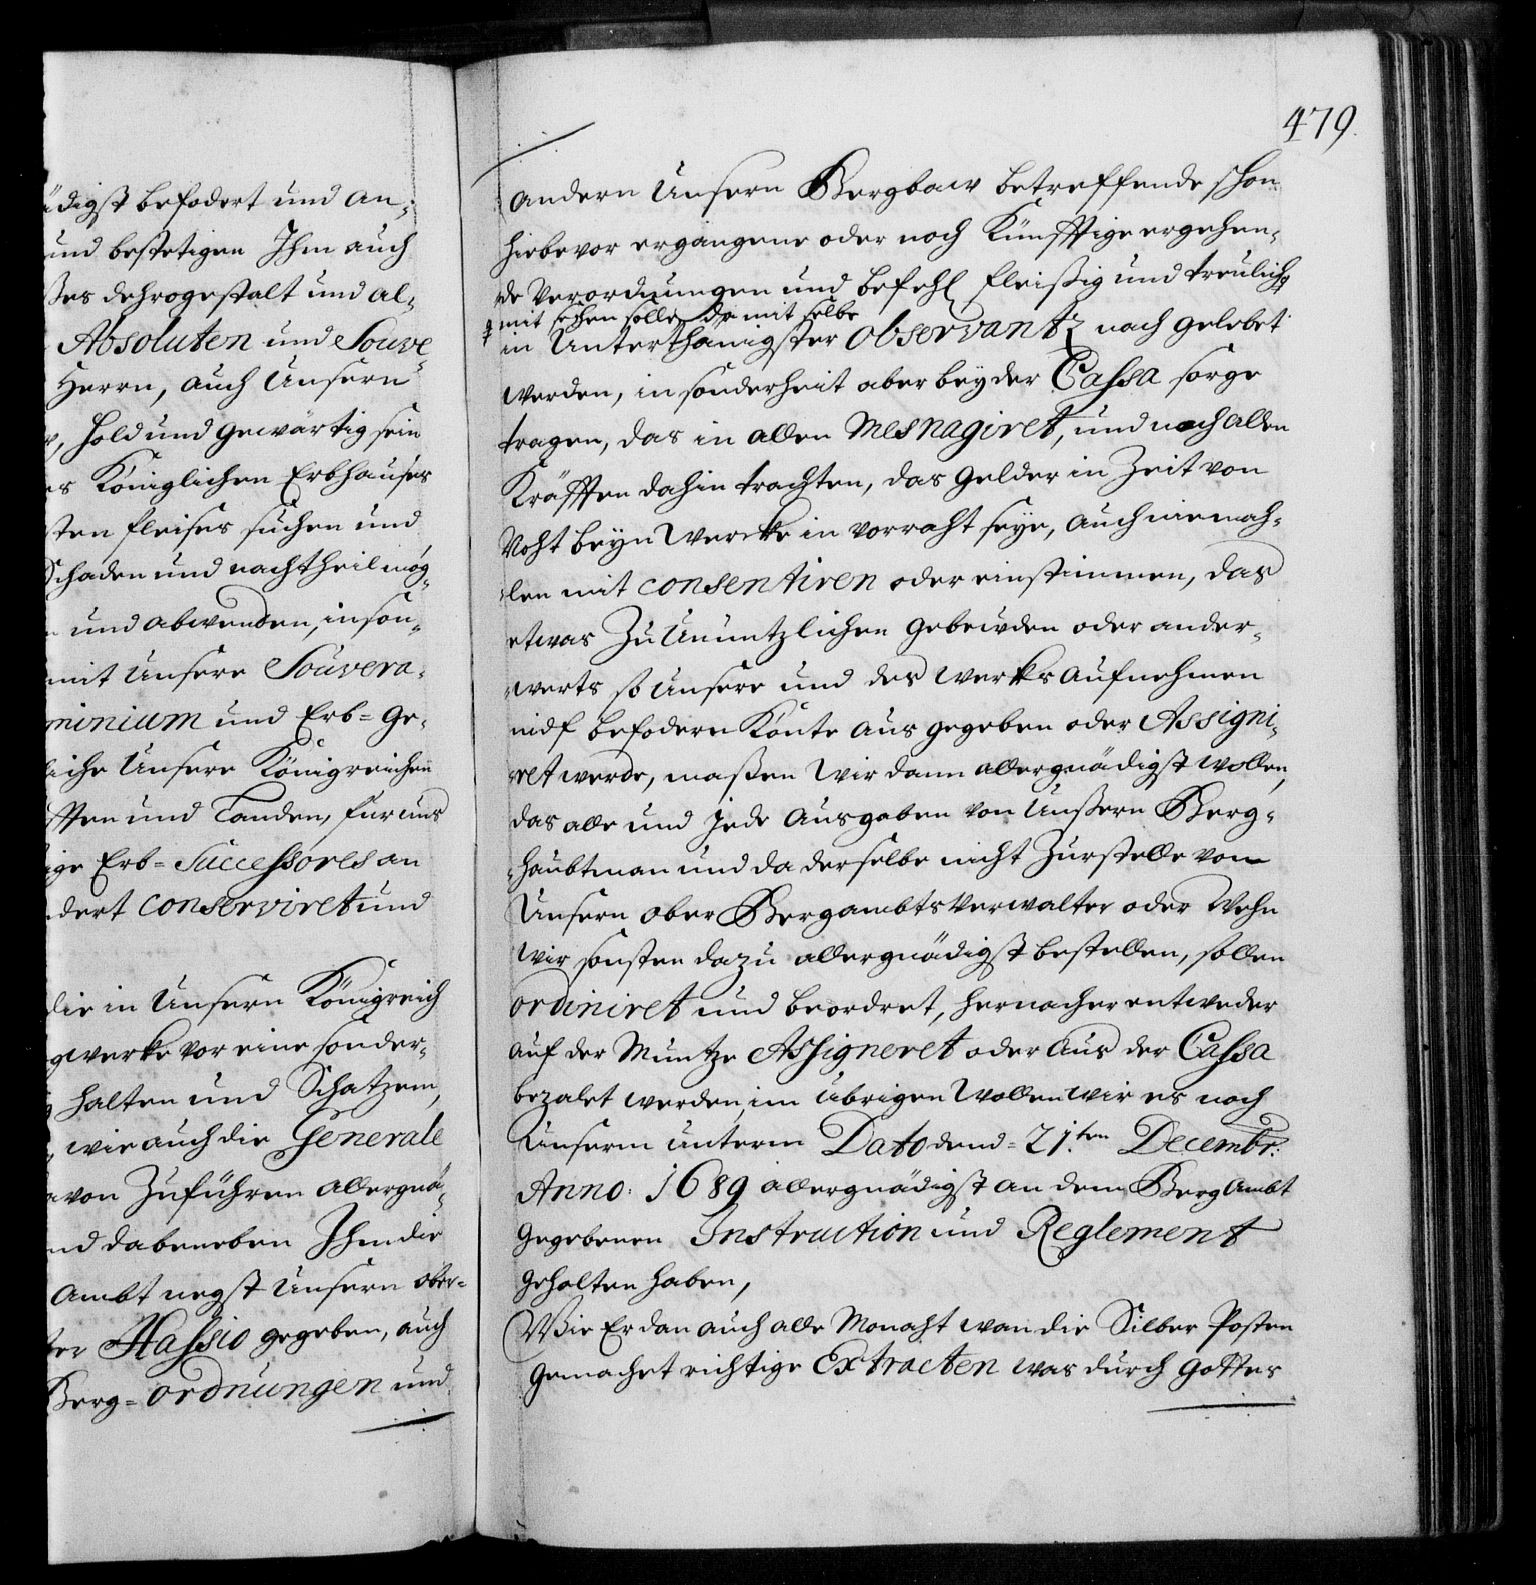 ädigst befodert und an,
und bestetigen Ihm auch
ßes dehrogestalt und al,
Absoluten und Souve
Herrn, auch Unsern
hold und gewärtig sein
es Königlichen Erbhauses
sten fleises suchen und
Schaden und nachtheil mög,
und abwenden, in son,
mit Unsere Souvera,
minium und Erb=Ge,
liche Unsere Königreichen
fften und Landen, für uns
ige Erb=Successores an
dert conserviret und
die in Unsern Königreich
gwerke vor eine sonder,
halten und Schatzem,
wie auch die Generale
avon Zuführen allergnä,
nd dabeneben Ihm die
Ambt negst Unsern ober=
ter Hassio gegeben, auch
Berg=ordnungen und
479.
andern Unsern Bergbaw betreffende schon
hiebevor ergangene oder noch Künfftige ergehen,
de Verordnungen und befehl fleißig und treulich
mit sehen solle, da mit selbe
in Unterthänigster observantz nach gelebet
werden, in sonderheit aber bey der Cassa sorge
tragen, das in allen mesnagiret, und nach allen
Kräfften dahin trachten, das gelder in Zeit von
Noht beyn Wercke in vorraht seye, auch niemah,
len mit consentiren oder einstimmen, das
etwas Zu Unnützlichen gebeüden oder ander,
werts so Unsere und des werks aufnehmen
nicht befodern Könte aus gegeben oder Assigni,
ret werde, maßen Wir dann allergnädigst wollen,
das alle und jede ausgaben von Unßern Berg,
haubtman und da derselbe nicht Zur stelle vom
Unsern ober Bergambts Verwalter oder Wehn
wir sonsten dazu allergnädigst bestellen, sollen
ordiniret und beordret, hernacher entweder
auf der Müntze Assigneret oder aus der Cassa
bezalet werden, im übrigen Wollen wir es nach
Unserm unterm Dato dend=21.ten Decembr:
Anno: 1689 allergnädigst an dem Berg Ambt
gegebenen Instruction und Reglement
gehalten haben,
Wie Er dan auch alle Monaht wan die Silber Posten
gemachet richtige Extracten was durch Gottes